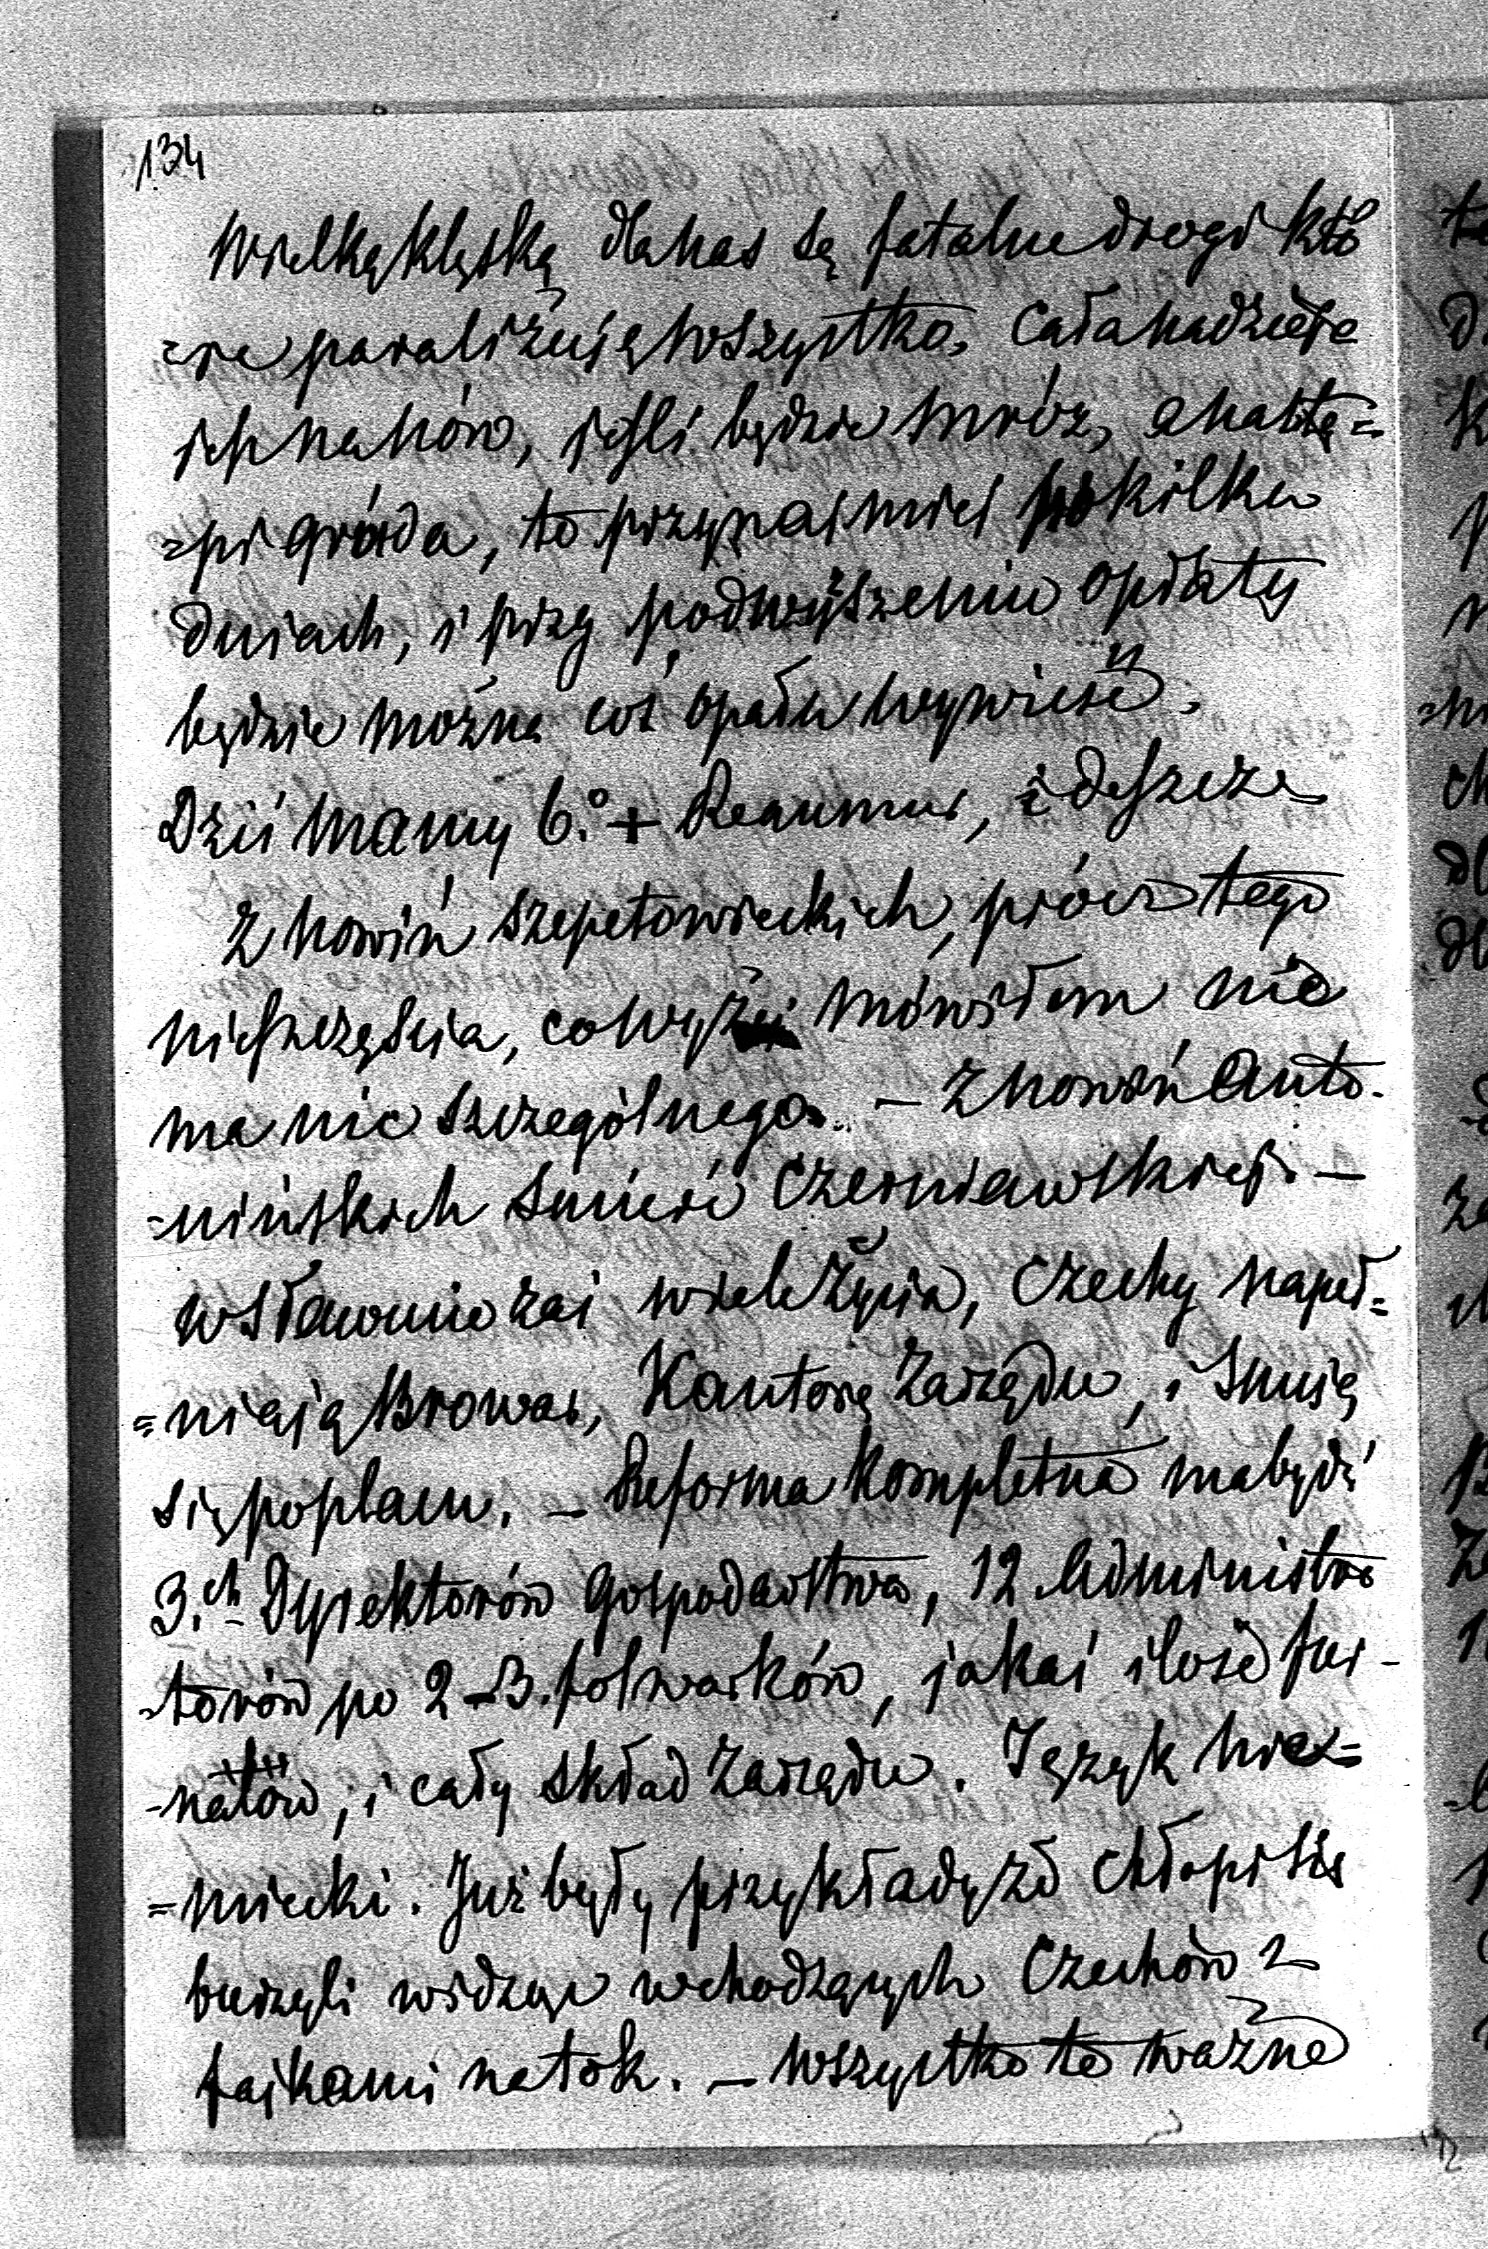 134
Wielką klęską dla nas są fatalne drogi któ
=re paraliżują wszystko, cała nadzieja
ich na nów, jeśli będzie mróz, a nastę=
=pi gróda, to przynajmniej po kilku
dniach, i przy podwyższeniu opłaty
będzie można coś opału wywieść.
Dziś mamy 6.° + Reaumur, i deszcze
Z nowin Szepetowieckich, prócz tego
nieszczęścia, co wyżej mówiłem nic
ma nic szczególnego. – Z nowin Anto-
=nińskich śmierć Czerniawskiej. –
w Sławucie zaś wiele życia, Czechy napeł=
=niają Browar, Kantorę Zarządu, i snują
się po placu. – Reforma kompletna ma być
3.ch Dyrektorów Gospodarstwa, 12 Administra
-torów po 2–3. folwarków, jakaś ilość fur-
-natów, i cały skład Zarządu. Język nie=
=miecki. Już były przykłady że chłopi się
burzyli widząc wchodzących Czechów z
fajkami na tok. – Wszystko to ważne